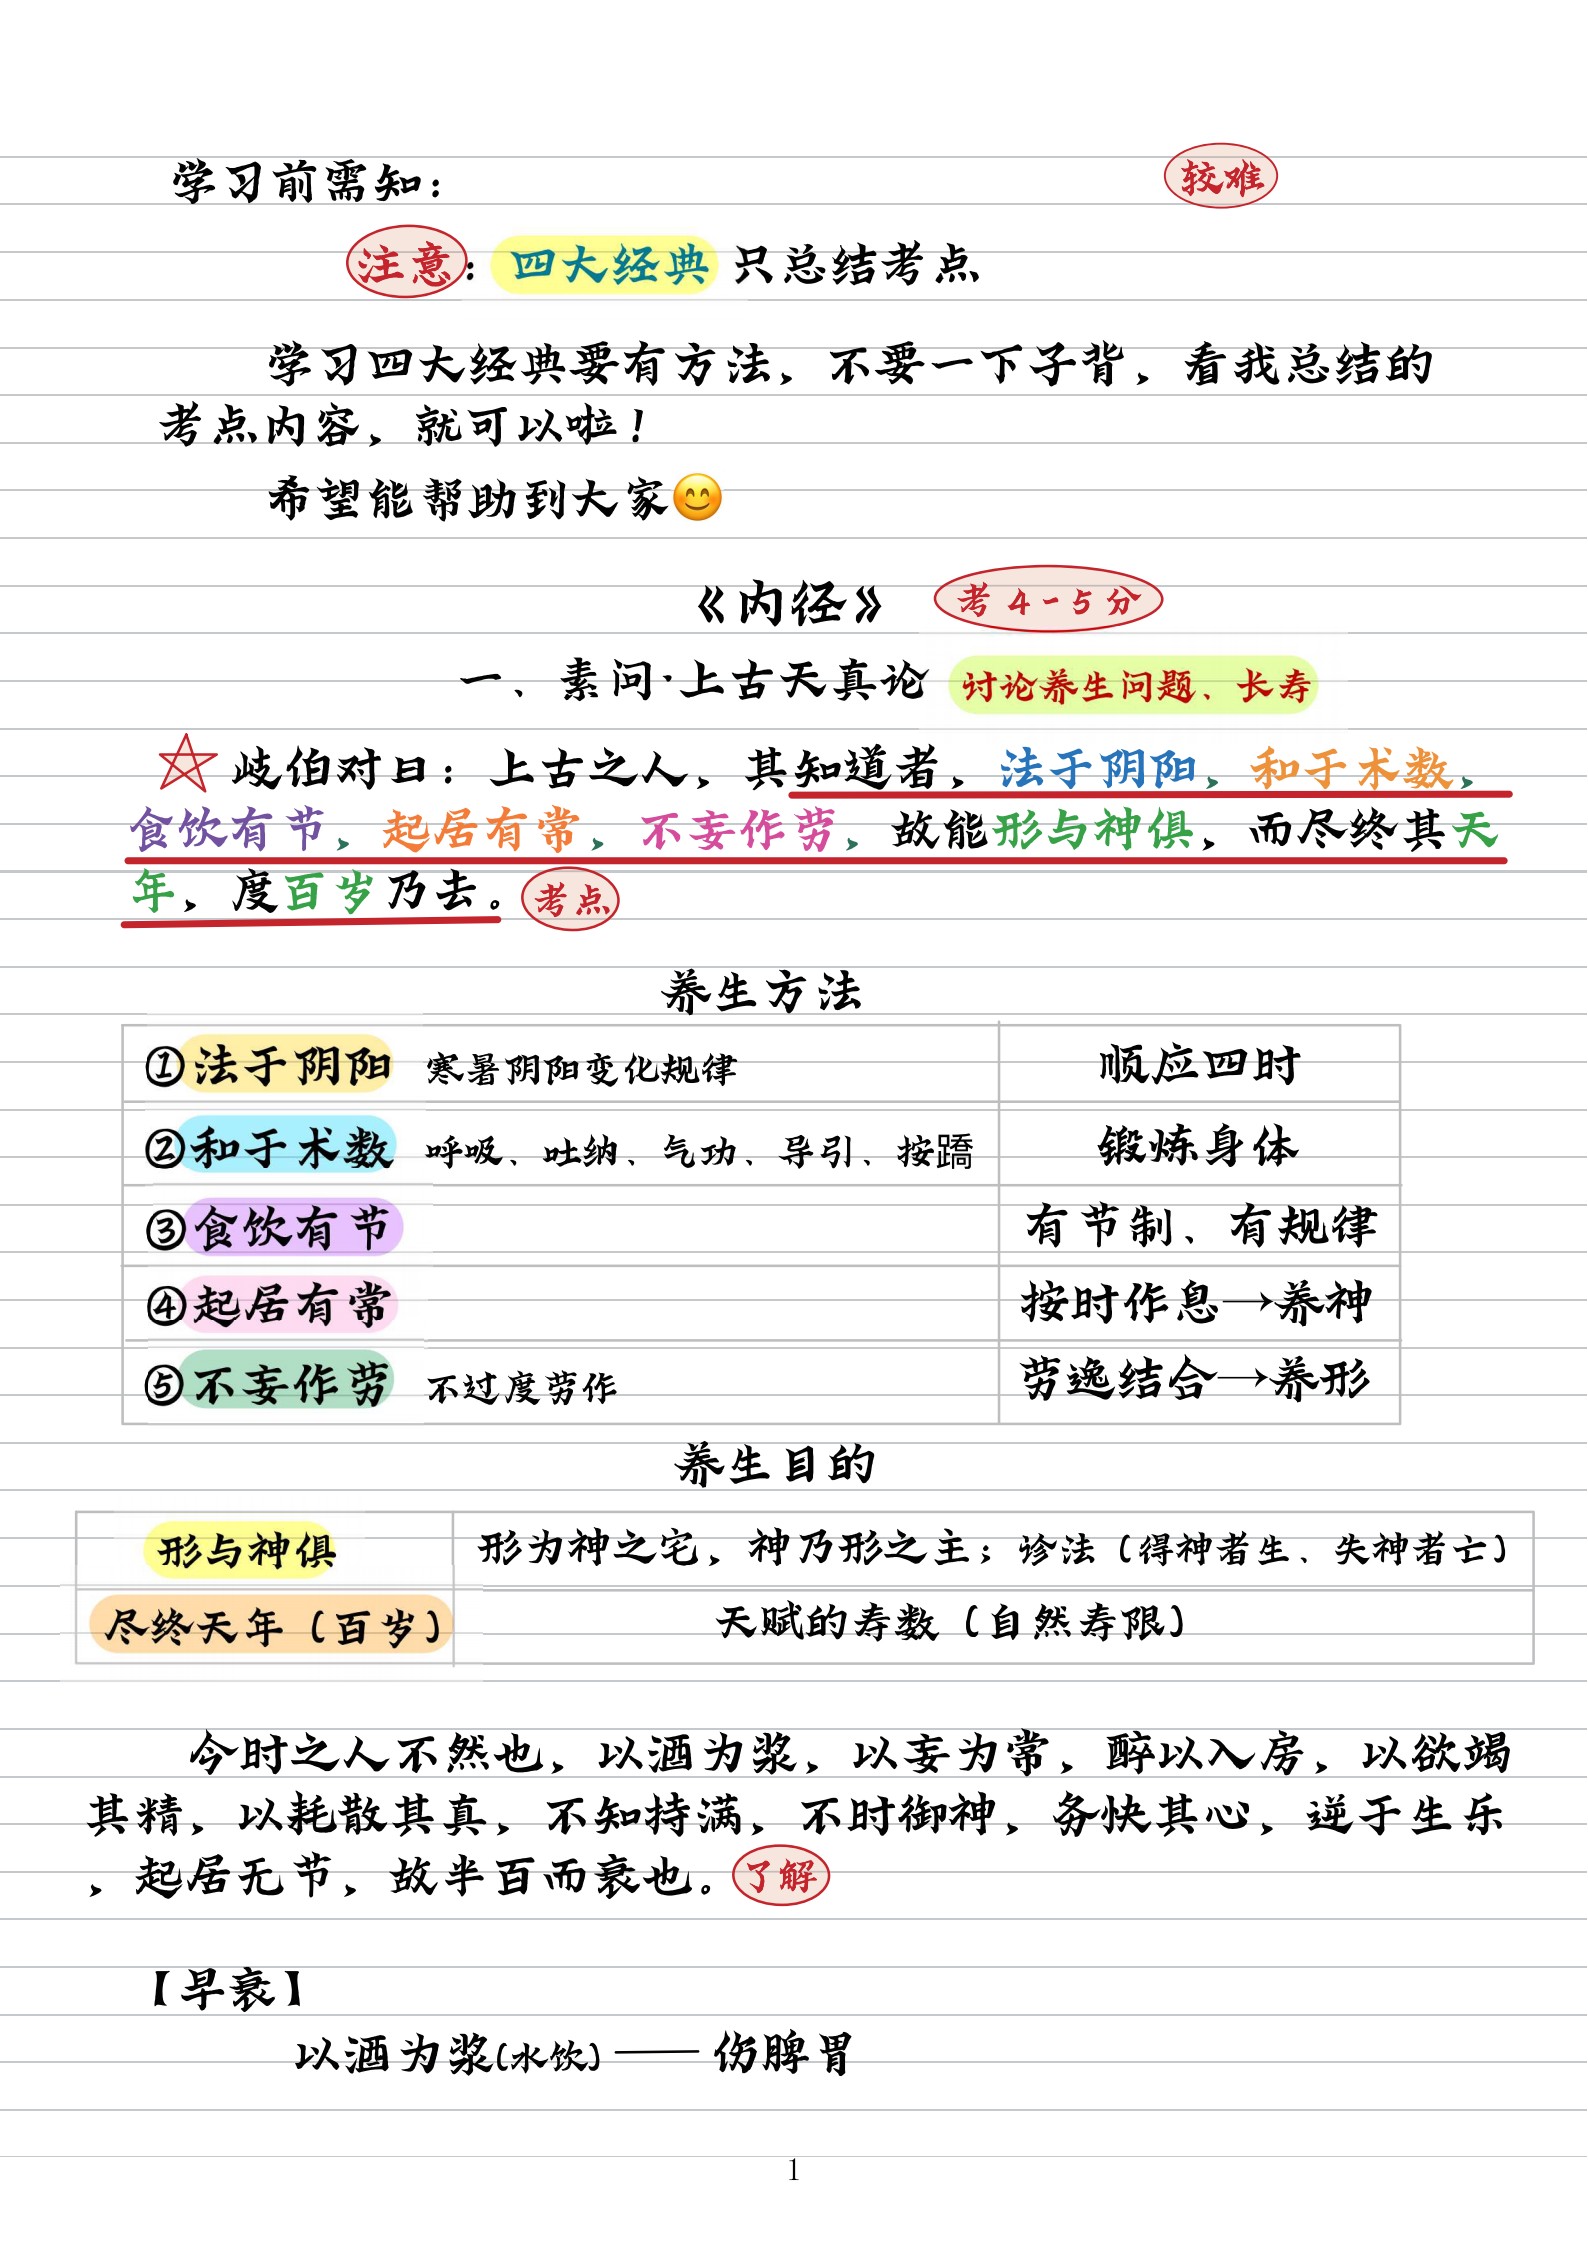 学习前需知：
较难
注意：四大经典 只总结考点
学习四大经典要有方法，不要一下子背，看我总结的
考点内容，就可以啦！
希望能帮助到大家😊
《内径》 考4-5分
一、素问·上古天真论 讨论养生问题、长寿
岐伯对曰：上古之人，其知道者，法于阴阳，和于术数，
食饮有节，起居有常，不妄作劳，故能形与神俱，而尽终其天
年，度百岁乃去。考点
养生方法
①法于阴阳 寒暑阴阳变化规律 顺应四时
②和于术数 呼吸、吐纳、气功、导引、按蹻 锻炼身体
③食饮有节 有节制、有规律
④起居有常 按时作息→养神
⑤不妄作劳 不过度劳作 劳逸结合→养形
养生目的
形与神俱 形为神之宅，神乃形之主；诊法（得神者生、失神者亡）
尽终天年（百岁） 天赋的寿数（自然寿限）
今时之人不然也，以酒为浆，以妄为常，醉以入房，以欲竭
其精，以耗散其真，不知持满，不时御神，务快其心，逆于生乐
，起居无节，故半百而衰也。了解
【早衰】
以酒为浆(水饮) —— 伤脾胃
1